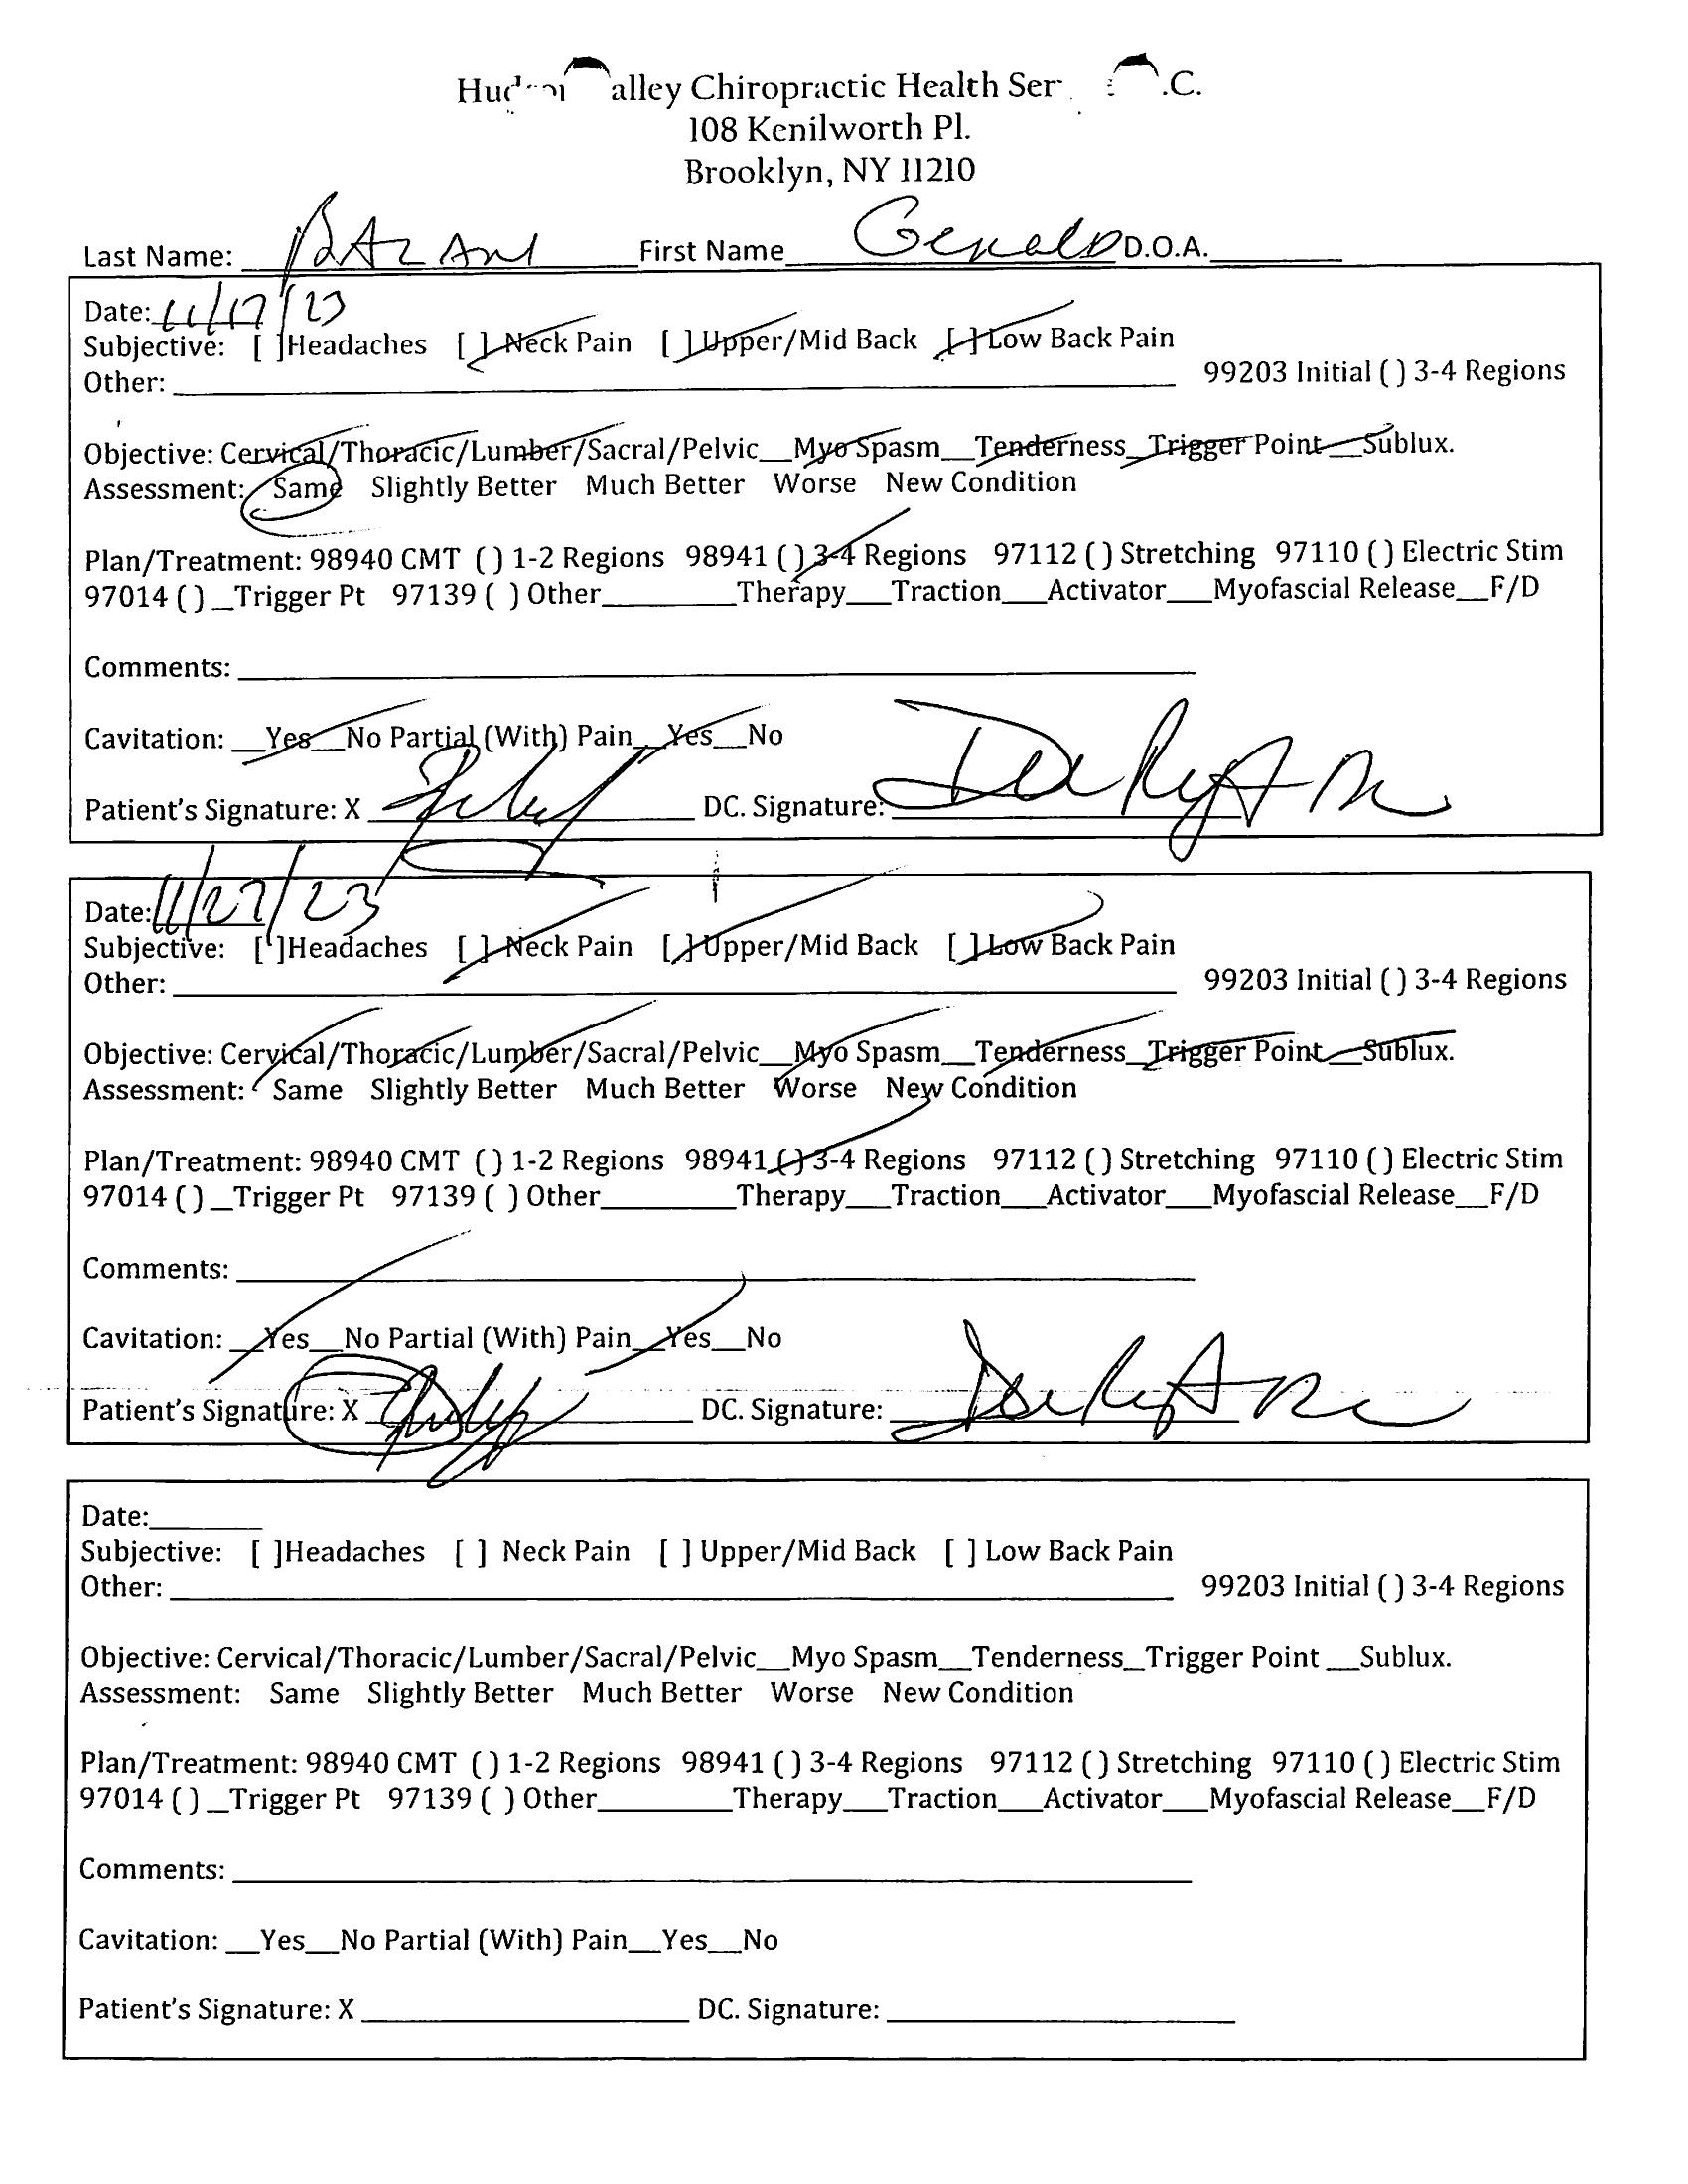 alley Chiropractic Health Ser .C.
108 Kenilworth Pl.
Brooklyn, NY 11210
Last Name: BAZANI First Name Gerald D.O.A.
Date: 11/17/23
Subjective: [ ]Headaches [ ] Neck Pain [ ] Upper/Mid Back [ ] Low Back Pain
Other: 99203 Initial ( ) 3-4 Regions
Objective: Cervical/Thoracic/Lumber/Sacral/Pelvic__Myo Spasm__Tenderness_Trigger Point __Sublux.
Assessment: Same Slightly Better Much Better Worse New Condition
Plan/Treatment: 98940 CMT ( ) 1-2 Regions 98941 ( ) 3-4 Regions 97112 ( ) Stretching 97110 ( ) Electric Stim
97014 ( ) _Trigger Pt 97139 ( ) Other________Therapy___Traction___Activator___Myofascial Release__F/D
Comments:
Cavitation: __Yes__No Partial (With) Pain__Yes__No
Patient's Signature: X DC. Signature:
Date: 11/27/23
Subjective: [ ]Headaches [ ] Neck Pain [ ] Upper/Mid Back [ ] Low Back Pain
Other: 99203 Initial ( ) 3-4 Regions
Objective: Cervical/Thoracic/Lumber/Sacral/Pelvic__Myo Spasm__Tenderness_Trigger Point __Sublux.
Assessment: Same Slightly Better Much Better Worse New Condition
Plan/Treatment: 98940 CMT ( ) 1-2 Regions 98941 ( ) 3-4 Regions 97112 ( ) Stretching 97110 ( ) Electric Stim
97014 ( ) _Trigger Pt 97139 ( ) Other________Therapy___Traction___Activator___Myofascial Release__F/D
Comments:
Cavitation: __Yes__No Partial (With) Pain__Yes__No
Patient's Signature: X DC. Signature:
Date:
Subjective: [ ]Headaches [ ] Neck Pain [ ] Upper/Mid Back [ ] Low Back Pain
Other: 99203 Initial ( ) 3-4 Regions
Objective: Cervical/Thoracic/Lumber/Sacral/Pelvic__Myo Spasm__Tenderness_Trigger Point __Sublux.
Assessment: Same Slightly Better Much Better Worse New Condition
Plan/Treatment: 98940 CMT ( ) 1-2 Regions 98941 ( ) 3-4 Regions 97112 ( ) Stretching 97110 ( ) Electric Stim
97014 ( ) _Trigger Pt 97139 ( ) Other________Therapy___Traction___Activator___Myofascial Release__F/D
Comments:
Cavitation: __Yes__No Partial (With) Pain__Yes__No
Patient's Signature: X DC. Signature: